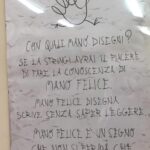 CON QUALI MANO DISEGNI?
SE LA STRINGI, AVRAI IL PIACERE
DI FARE LA CONOSCENZA DI
MANO FELICE.
MANO FELICE DISEGNA
SCRIVE SENZA SAPER LEGGERE
MANO FELICE È UN SEGNO
CHE NON